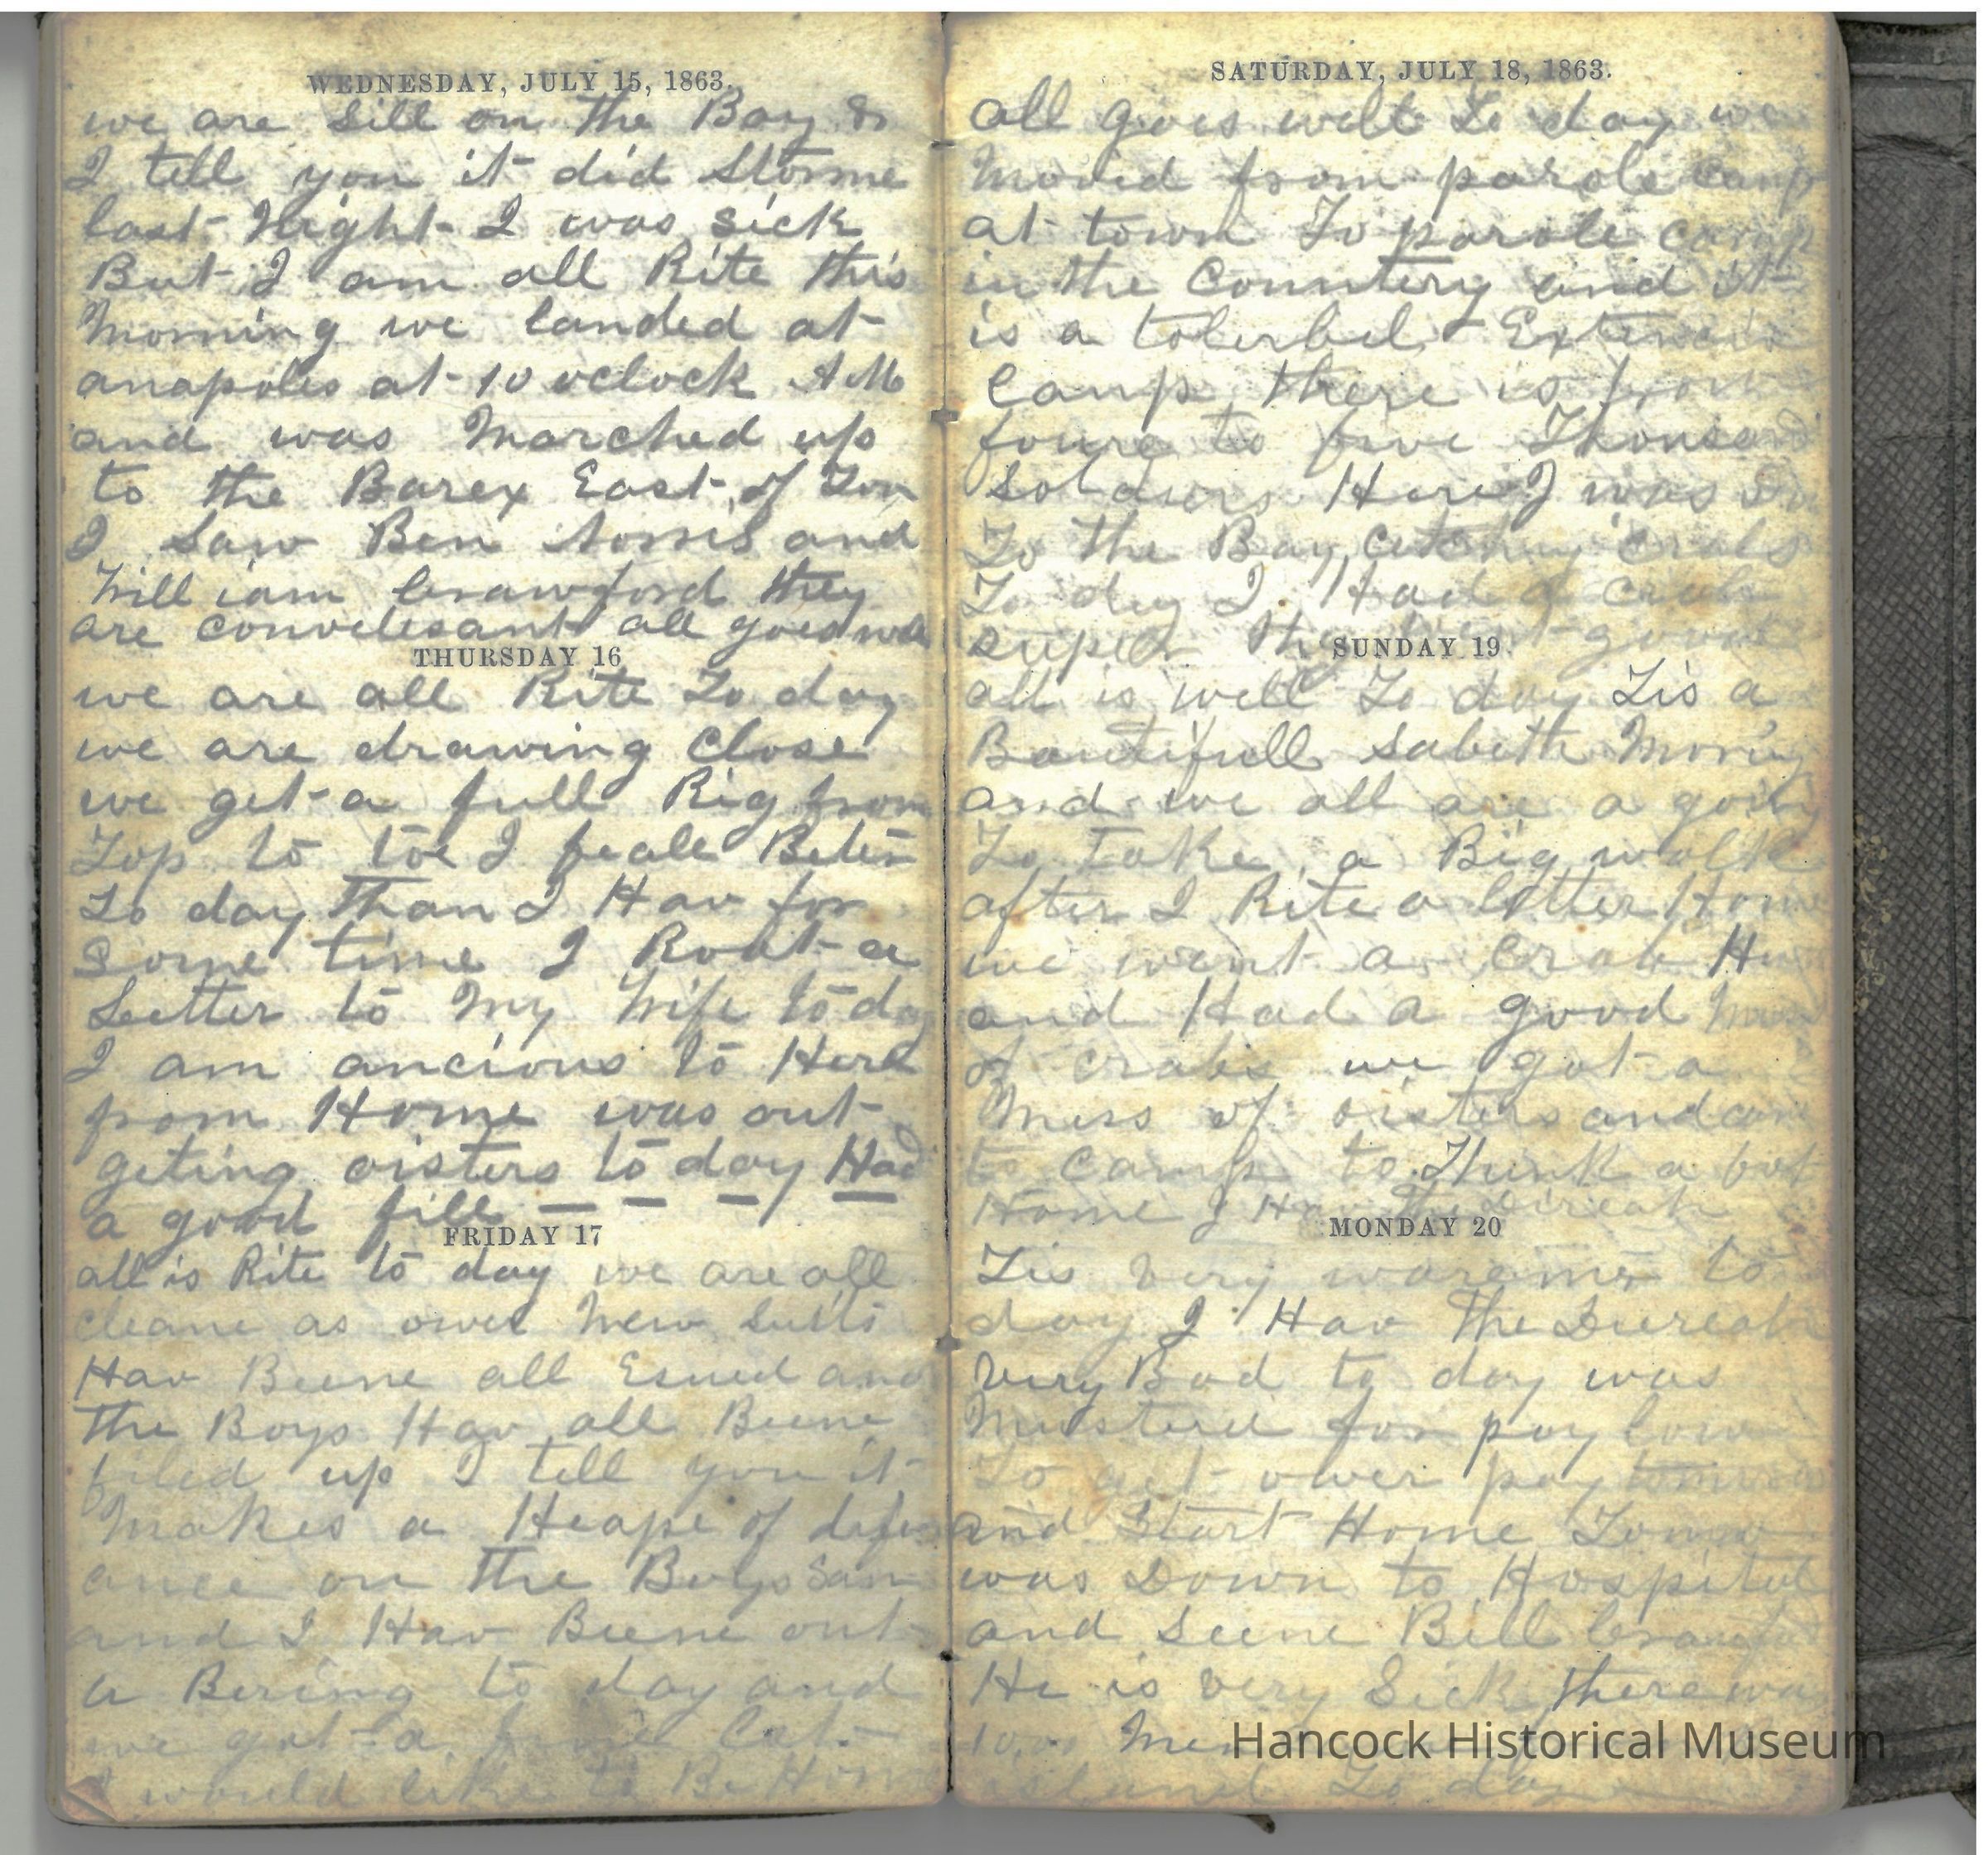 WEDNESDAY, JULY 15, 1863.
we are Sill on the Bay &
I tell you it did Storme
last Night I was sick
But I am all Rite this
Morning we landed at
anapoles at 10 oclock AM
and was Marched up
to the Barex East of Ton
I Saw Ben Norris and
William Crawford they
are convelesant all goes well
THURSDAY 16
we are all Rite To day
we are drawing Close
we get a full Rig from
Top to toe I feale Beter
To day than I Hav for
Some time I Roat a
Letter to My Wife to day
I am ancious to Here
from Home was out
geting oisters to day Had
a good fill
FRIDAY 17
all is Rite to day we are all
cleane as ower New Suits
Hav Beene all Esued and
the Boys Hav all Beene
filed up I tell you it
Makes a Heape of defer
ance on the Boys Sam
and I Hav Beene out
a Bering to day and
we got a Cat
I would like to Be Home
SATURDAY, JULY 18, 1863.
all goes well To day we
Moved from parole Camp
at town To parole camp
in the Counntery and it
is a tolerbel Extencive
Camp there is from
foure to five Thousand
Soldiers Here I was
To the Bay Catching Crabs
To day I Had a crab
super
SUNDAY 19.
all is well To day Tis a
Bautifull Sabeth Morning
and we all are a going
To Take a Big walk
after I Rite a letter Home
we went a Crab
and Had a good Mess
of crabs we got a
Mess of oisters and came
to Camp to Think a bout
Home I Hav the
MONDAY 20
Tis very wareme to
day I Hav the
very Bad to day was
Musterd for pay
To get ower pay
and Start Home
was Down to Hospital
and Seene Bill Crawford
He is very Sick there was
To day
Hancock Historical Museum